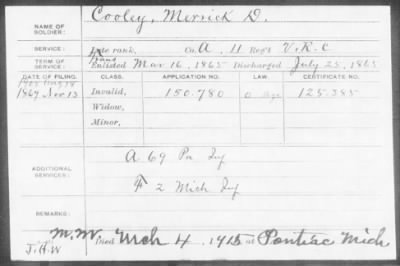 NAME OF SOLDIER: Cooley, Merrick D.
SERVICE: Late rank, Co. A, 11 Reg't V.R.C
TERM OF SERVICE: Trans Enlisted Mar 16, 1865 Discharged July 25, 1865
DATE OF FILING. CLASS. APPLICATION NO. LAW. CERTIFICATE NO.
1869 Nov 13 Invalid, 150.780 125.385
Widow,
Minor,
ADDITIONAL SERVICES: A 69 Pa Inf
F 2 Mich Inf
REMARKS:
M.W. Died Mch 4, 1915 at Pontiac Mich
J.H.W